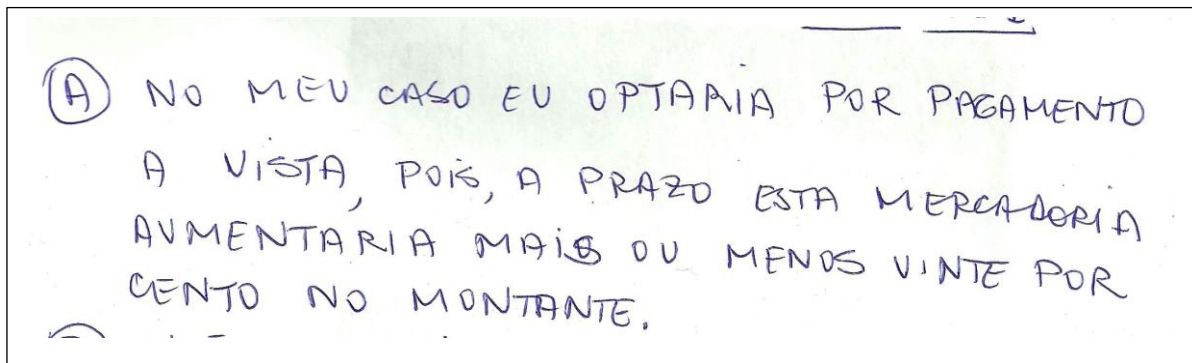 (A) NO MEU CASO EU OPTARIA POR PAGAMENTO
A VISTA, POIS, A PRAZO ESTA MERCADORIA
AUMENTARIA MAIS OU MENOS VINTE POR
CENTO NO MONTANTE.